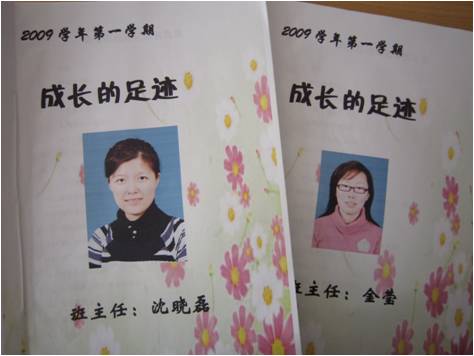 2009 学年第一学期
成长的足迹
班主任：沈晓磊
2009 学年第一学期
成长的足迹
班主任：金莹